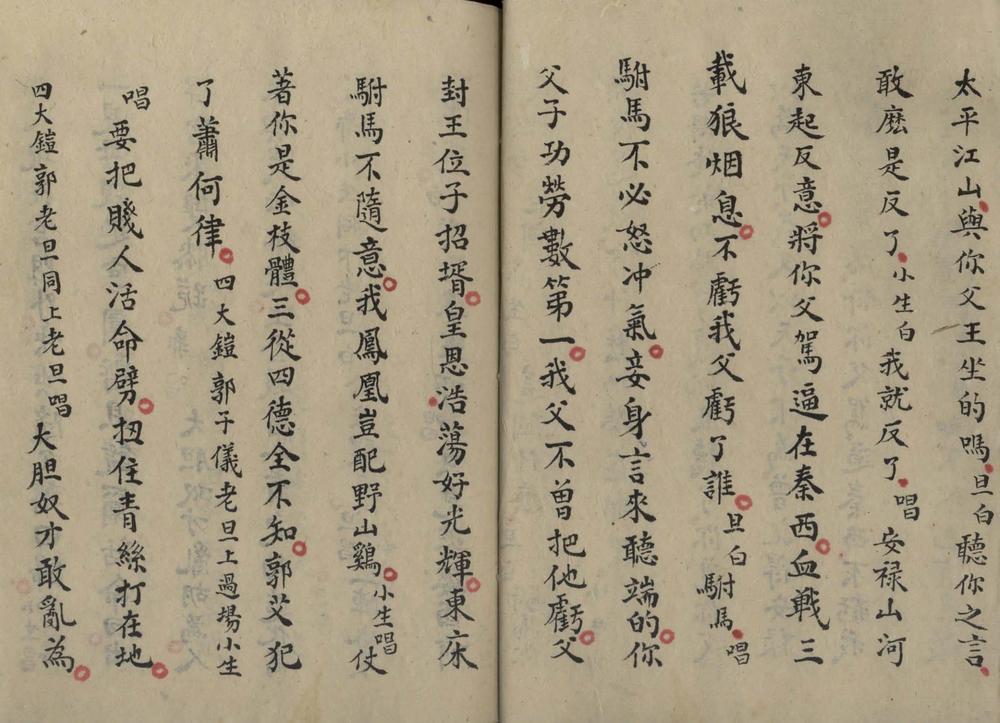 太平江山與你父王坐的嗎旦白聽你之言
敢麽是反了小生白我就反了唱安禄山河
東起反意將你父駕逼在秦西血戰三
載狼烟息不虧我父虧了誰旦白駙馬唱
駙馬不必怒冲氣妾身言來聽端的你
父子功勞數第一我父不曾把他虧父
封王位子招壻皇恩浩蕩好光輝東床
駙馬不隨意我鳳凰豈配野山鷄小生唱仗
著你是金枝體三從四德全不知郭艾犯
了蕭何律四大鎧郭子儀老旦上過塲小生
唱要把賤人活命劈扭住青絲打在地
四大鎧郭老旦同上老旦唱大胆奴才敢亂為